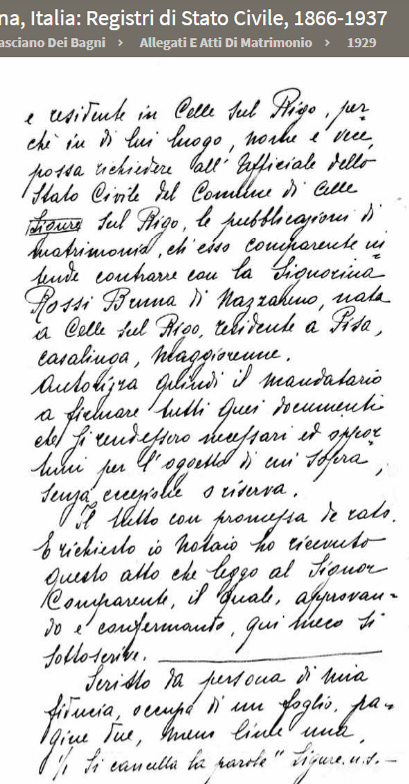 na, Italia: Registri di Stato Civile, 1866-1937
asciano Dei Bagni > Allegati E Atti Di Matrimonio > 1929
e residente in Celle sul Rigo, per-
chè in di lui luogo, nome e vece,
possa richiedere all'Ufficiale dello
Stato Civile del Comune di Celle
Ligure sul Rigo, le pubblicazioni di
matrimonio, ch'esso comparente in
tende contrarre con la Signorina
Rossi Bruna di Nazzareno, nata
a Celle sul Rigo, residente a Pisa,
casalinga, maggiorenne.
Autorizza quindi il mandatario
a firmare tutti quei documenti
che si rendessero necessari ed oppor
tuni per l'oggetto di cui sopra,
senza eccezione o riserva.
Il tutto con promessa de rato.
E richiesto io Notaio ho ricevuto
questo atto che leggo al Signor
Comparente, il quale, approvan-
do e confermando, qui meco si
sottoscrive.
Scritto da persona di mia
fiducia, occupa di un foglio, pa-
gine due, meno linee una,
Si cancella la parola "Ligure. n.s.-